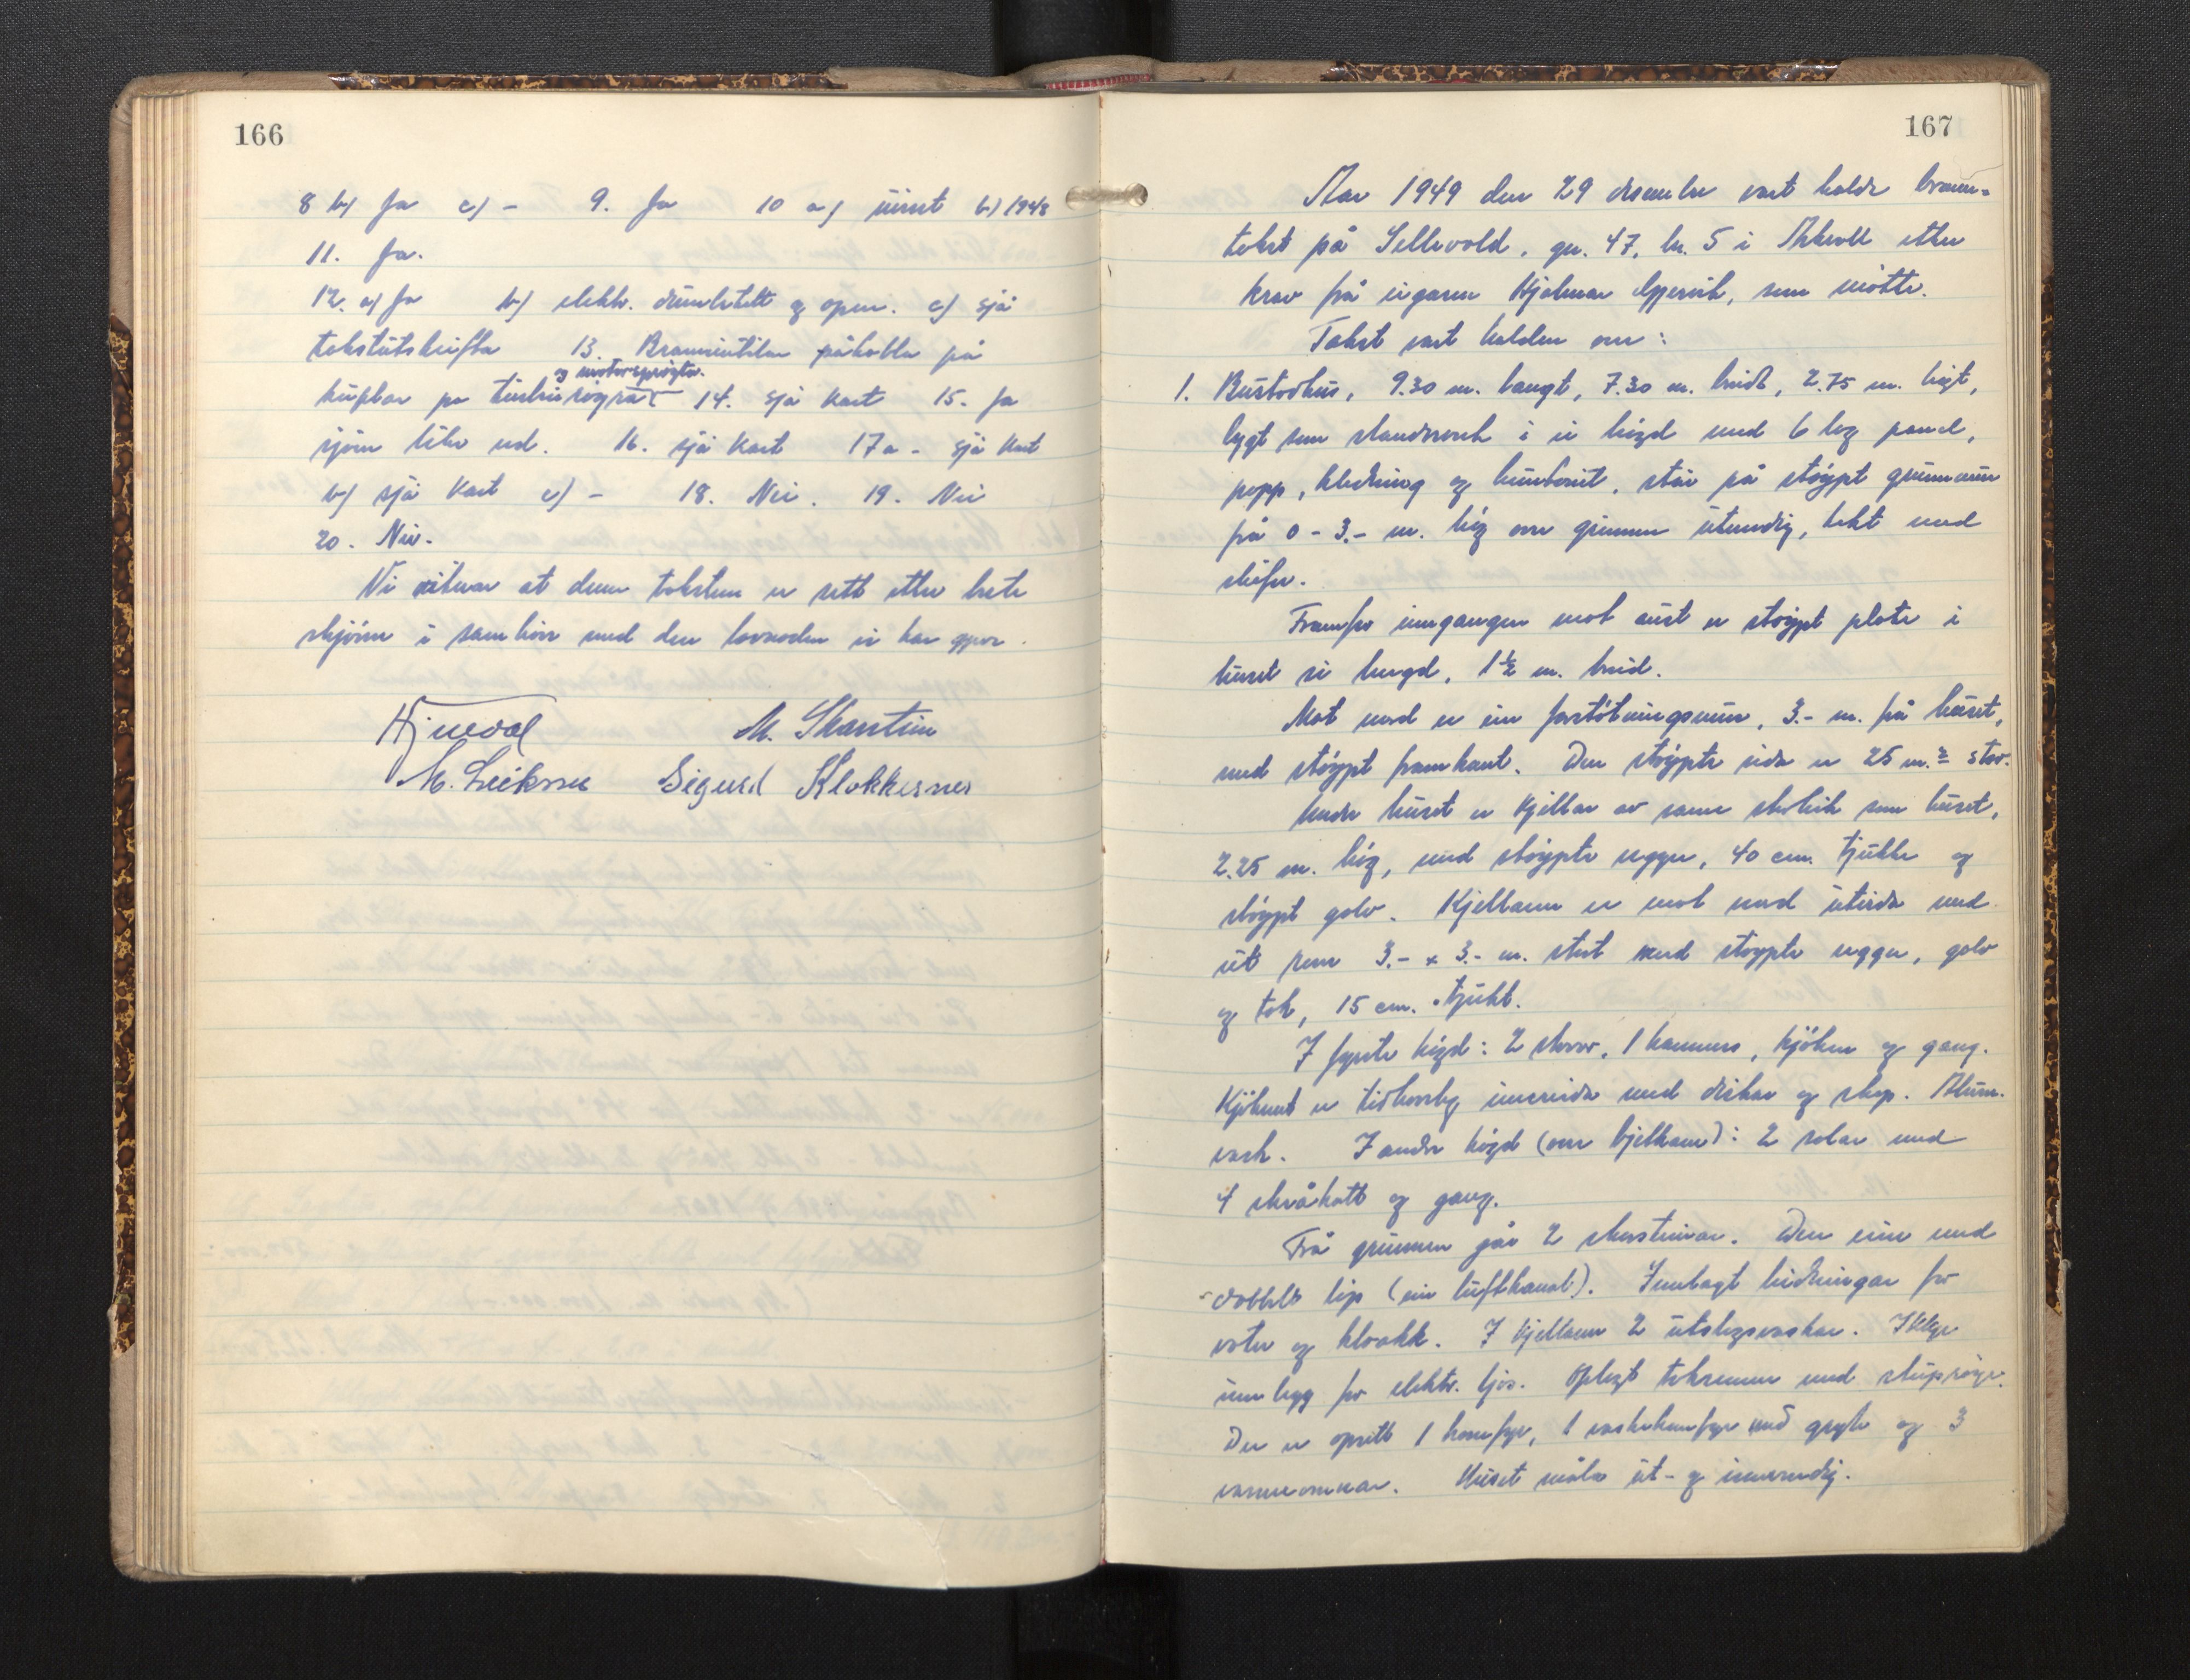 166
8 b) Ja c) - 9. Ja 10 a) uvisst b) 1948
11. Ja.
12. a) Ja b) elektr. dunletett og open. c) sjå
takstutskrifta 13. Brannventilar påkobla på
og motorsprøyta.
14. sjå kart 15. Ja
sjøen like ved. 16. sjå kart 17 a - sjå kart
b) sjå kart c) - 18. Nei. 19. Nei
20. Nei.
Vi vitnar at denne taksten er sett etter beste
skjønn i samhøve med den lovnaden vi har gjeve.
M. Skarstein
Sigurd Klokkernes
167
År 1949 den 29 desember vart halde brann-
takst på Sellevold, gn. 47, bn. 5 i etter
krav frå eigaren Hjalmar Gjervik, som møtte.
Takst vart halden over:
1. Bustadhus, 9.30 m. langt, 7.30 m. breidt, 2.75 m. høgt,
bygt som standarverk i ei høgd med 6 lag panel,
papp, kledning og huntonit, står på støypt grunnmur
frå 0 - 3.- m. høg over grunnen utvendig, tekt med
skifer.
Framfor inngangen mot aust er støypt plate i
huset si lengd, 1½ m. breid.
Mot nord er ein forstøtningsmur, 3.- m. frå huset,
med støypt framkant. Den støypte sida er 25 m.² stor.
Under huset er kjellar av same storleik som huset,
2.25 m. høg, med støypte vegger, 40 cm. tjukke og
støypt golv. Kjellaren er mot nord utvida med
eit rom 3.- x 3.- m. stort med støypte vegger, golv
og tak, 15 cm. tjukk.
I fyrste høgd: 2 stover, 1 kammers, kjøken og gang.
Kjøkenet er tidhøveleg innreidd med diskar og skap. Alum.
vask. I andre høgd (over bjelkane): 2 salar med
4 skråkott og gang.
Frå grunnen går 2 skorsteinar. Den eine med
dobbelt løp (ein luftkanal). Innlagt leidningar for
vatn og kloakk. I kjellaren 2 utslagsvaskar. Ikkje
innlegg for elektr. ljos. Oplagt takrenner med nedløpsrøyr.
Der er opsett 1 komfyr, 1 vaskekomfyr med gryte og 3
varmeomnar. Huset måla ut- og innvendig.